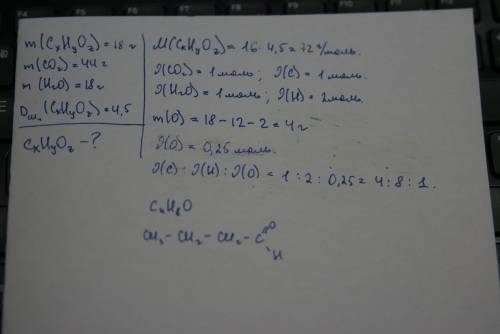 m(CxHyOz) = 18 г
m(CO₂) = 44 г
m(H₂O) = 18 г
D(CxHyOz) = 4,5
CxHyOz - ?
M(CxHyOz) = 16 · 4,5 = 72 г/моль.
ϑ(CO₂) = 1 моль ; ϑ(C) = 1 моль.
ϑ(H₂O) = 1 моль ; ϑ(H) = 2 моль.
m(O) = 18 - 12 - 2 = 4 г
ϑ(O) = 0,25 моль.
ϑ(C) : ϑ(H) : ϑ(O) = 1 : 2 : 0,25 = 4 : 8 : 1.
C₄H₈O
CH₃ - CH₂ - CH₂ - C
O
H